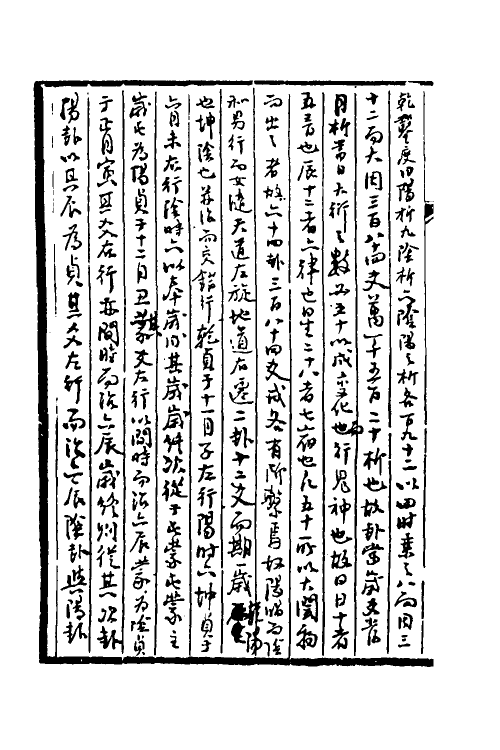 乾鑿度曰陽析九陰析六陰陽之析各百九十二以四時乘之八而周三
十二而大周三百八十四爻萬一千五百二十析也故卦當歲爻當
月析當日大衍之數必五十以成變化而行鬼神也故曰日十者
五音也辰十二者六律也星二十八者七宿也凡五十所以大閡物
而出之者故六十四卦三百八十四爻戒各有所繫焉故陽唱而陰
和男行而女隨天道左旋地道右遷二卦十二爻而期一歲乾陽
也坤陰也並治而交錯行乾貞于十一月子左行陽時六坤貞于
六月未右行陰時六以奉歲成其歲歲終次從于屯蒙屯蒙主
歲屯為陽貞于十二月丑其爻左行以間時而治六辰蒙為陰貞
于正月寅其爻右行亦間時而治六辰歲終則從其次卦
陽卦以其辰為貞其爻左行而治六辰陰卦與陽卦